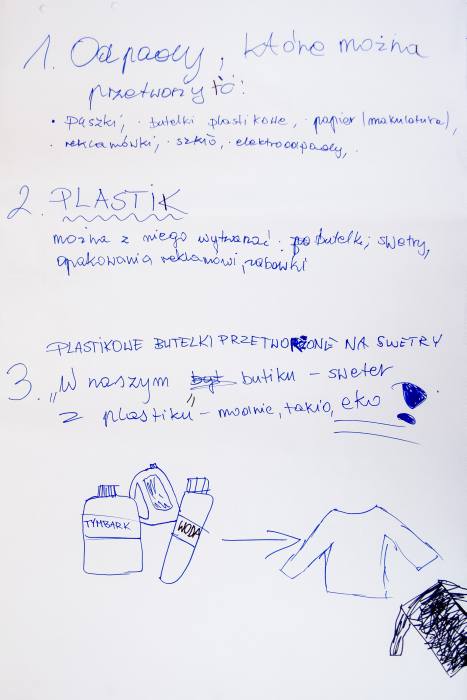 1. Odpady, które można
przetworzyć:
• puszki, • butelki plastikowe, • papier (makulatura),
• reklamówki, • szkło, • elektroodpady, •
2. PLASTIK
można z niego wytwarzać: butelki, swetry,
opakowania reklamówi, zabawki
PLASTIKOWE BUTELKI PRZETWORZONE NA SWETRY
3. „W naszym butiku – sweter
z plastiku" – modnie, tanio, eko
TYMBARK
WODA